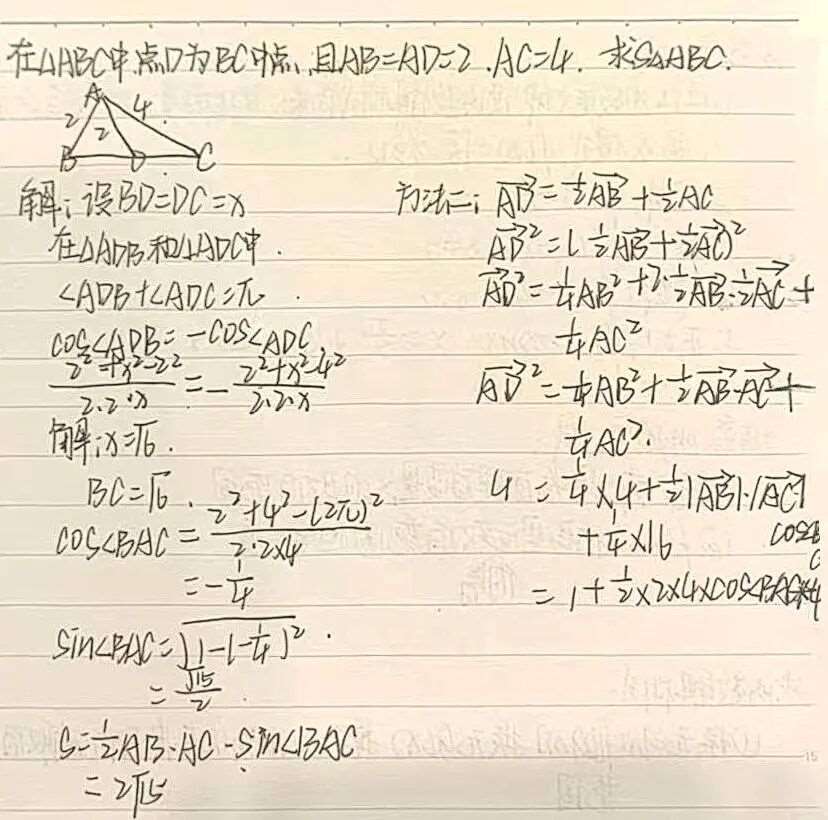 在△ABC中,点D为BC中点,且AB=AD=2.AC=4. 求S△ABC.
A
2
2
4
B
D
C
解:设BD=DC=x
在△ADB和△ADC中.
∠ADB+∠ADC=π.
cos∠ADB=-cos∠ADC.
\frac{2²+x²-2²}{2·2·x}=-\frac{2²+x²-4²}{2·2·x}
解:x=√6.
BC=√6.
cos∠BAC=\frac{2²+4²-(2√6)²}{2·2×4}
=-\frac{1}{4}
sin∠BAC=\sqrt{1-(-\frac{1}{4})²}.
=\frac{√15}{2}.
S=\frac{1}{2}AB·AC·sin∠BAC
=2√15
方法二:\vec{AD}=\frac{1}{2}\vec{AB}+\frac{1}{2}AC
\vec{AD}²=(\frac{1}{2}\vec{AB}+\frac{1}{2}\vec{AC})²
\vec{AD}²=\frac{1}{4}AB²+2·\frac{1}{2}\vec{AB}·\frac{1}{2}\vec{AC}+
\frac{1}{4}AC²
\vec{AD}²=\frac{1}{4}AB²+\frac{1}{2}\vec{AB}·\vec{AC}+
\frac{1}{4}AC².
4=\frac{1}{4}×4+\frac{1}{2}|\vec{AB}|·|\vec{AC}|
+\frac{1}{4}×16 cos∠B
=1+\frac{1}{2}×2×4×cos∠BAC+4
15